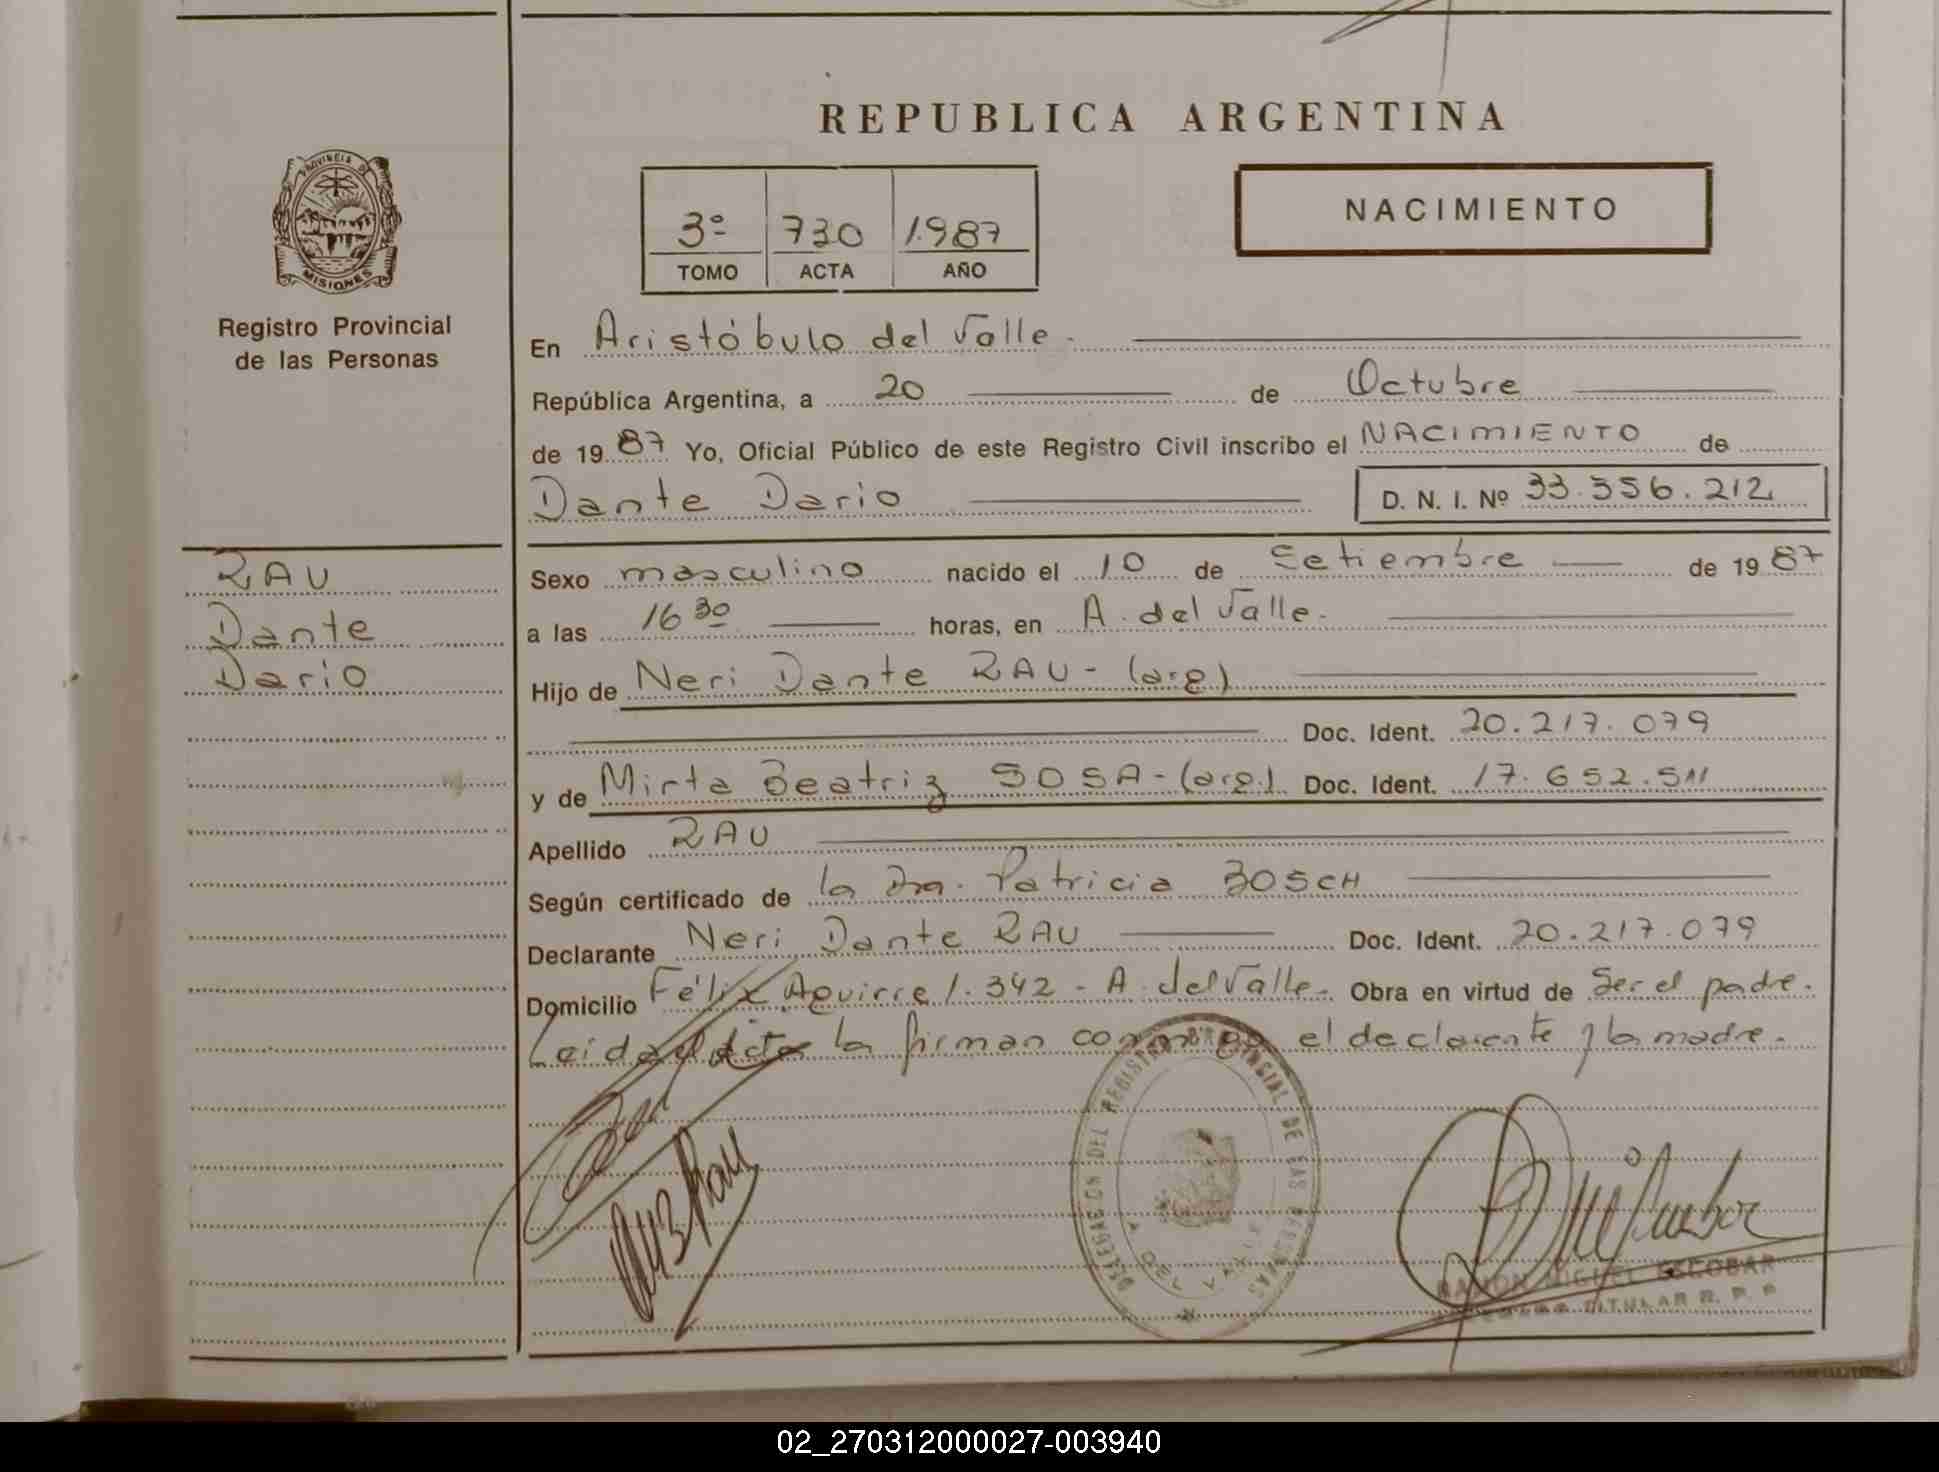 REPUBLICA ARGENTINA
PROVINCIA DE
MISIONES
Registro Provincial
de las Personas
3º 730 1987
TOMO ACTA AÑO
NACIMIENTO
En Aristóbulo del Valle.
República Argentina, a 20 de Octubre
de 1987 Yo, Oficial Público de este Registro Civil inscribo el NACIMIENTO de
Dante Dario D. N. I. Nº 33.356.212
RAU
Dante
Dario
Sexo masculino nacido el 10 de Setiembre de 1987
a las 16 30 horas, en A. del Valle.
Hijo de Neri Dante RAU - (arg)
Doc. Ident. 20.217.079
y de Mirta Beatriz SOSA - (arg.) Doc. Ident. 17.652.511
Apellido RAU
Según certificado de la Dra. Patricia BOSCH
Declarante Neri Dante RAU Doc. Ident. 20.217.079
Domicilio Félix Aguirre 1.342 - A. del Valle. Obra en virtud de Ser el padre.
Leida el acta la firman conmigo el declarante y la madre.
DELEGACION DEL REGISTRO PROVINCIAL DE LAS PERSONAS
A. DEL VALLE
RAMON MIGUEL ESCOBAR
TITULAR R. P. P.
02_270312000027-003940